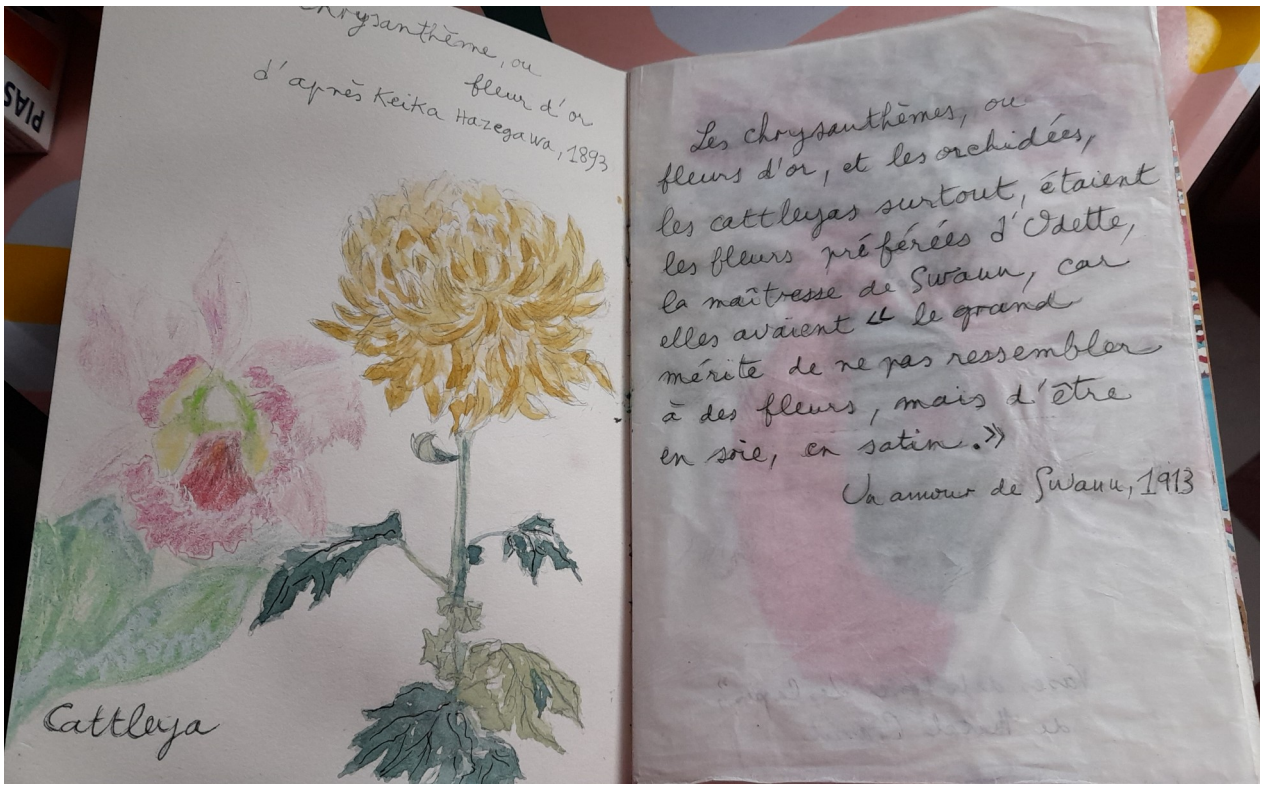 Chrysanthème, ou
fleur d'or
d'après Keika Hazegawa, 1893
Cattleya
Les chrysanthèmes, ou
fleurs d'or, et les orchidées,
les cattleyas surtout, étaient
les fleurs préférées d'Odette,
la maîtresse de Swann, car
elles avaient « le grand
mérite de ne pas ressembler
à des fleurs, mais d'être
en soie, en satin.»
Un amour de Swann, 1913
PIAS